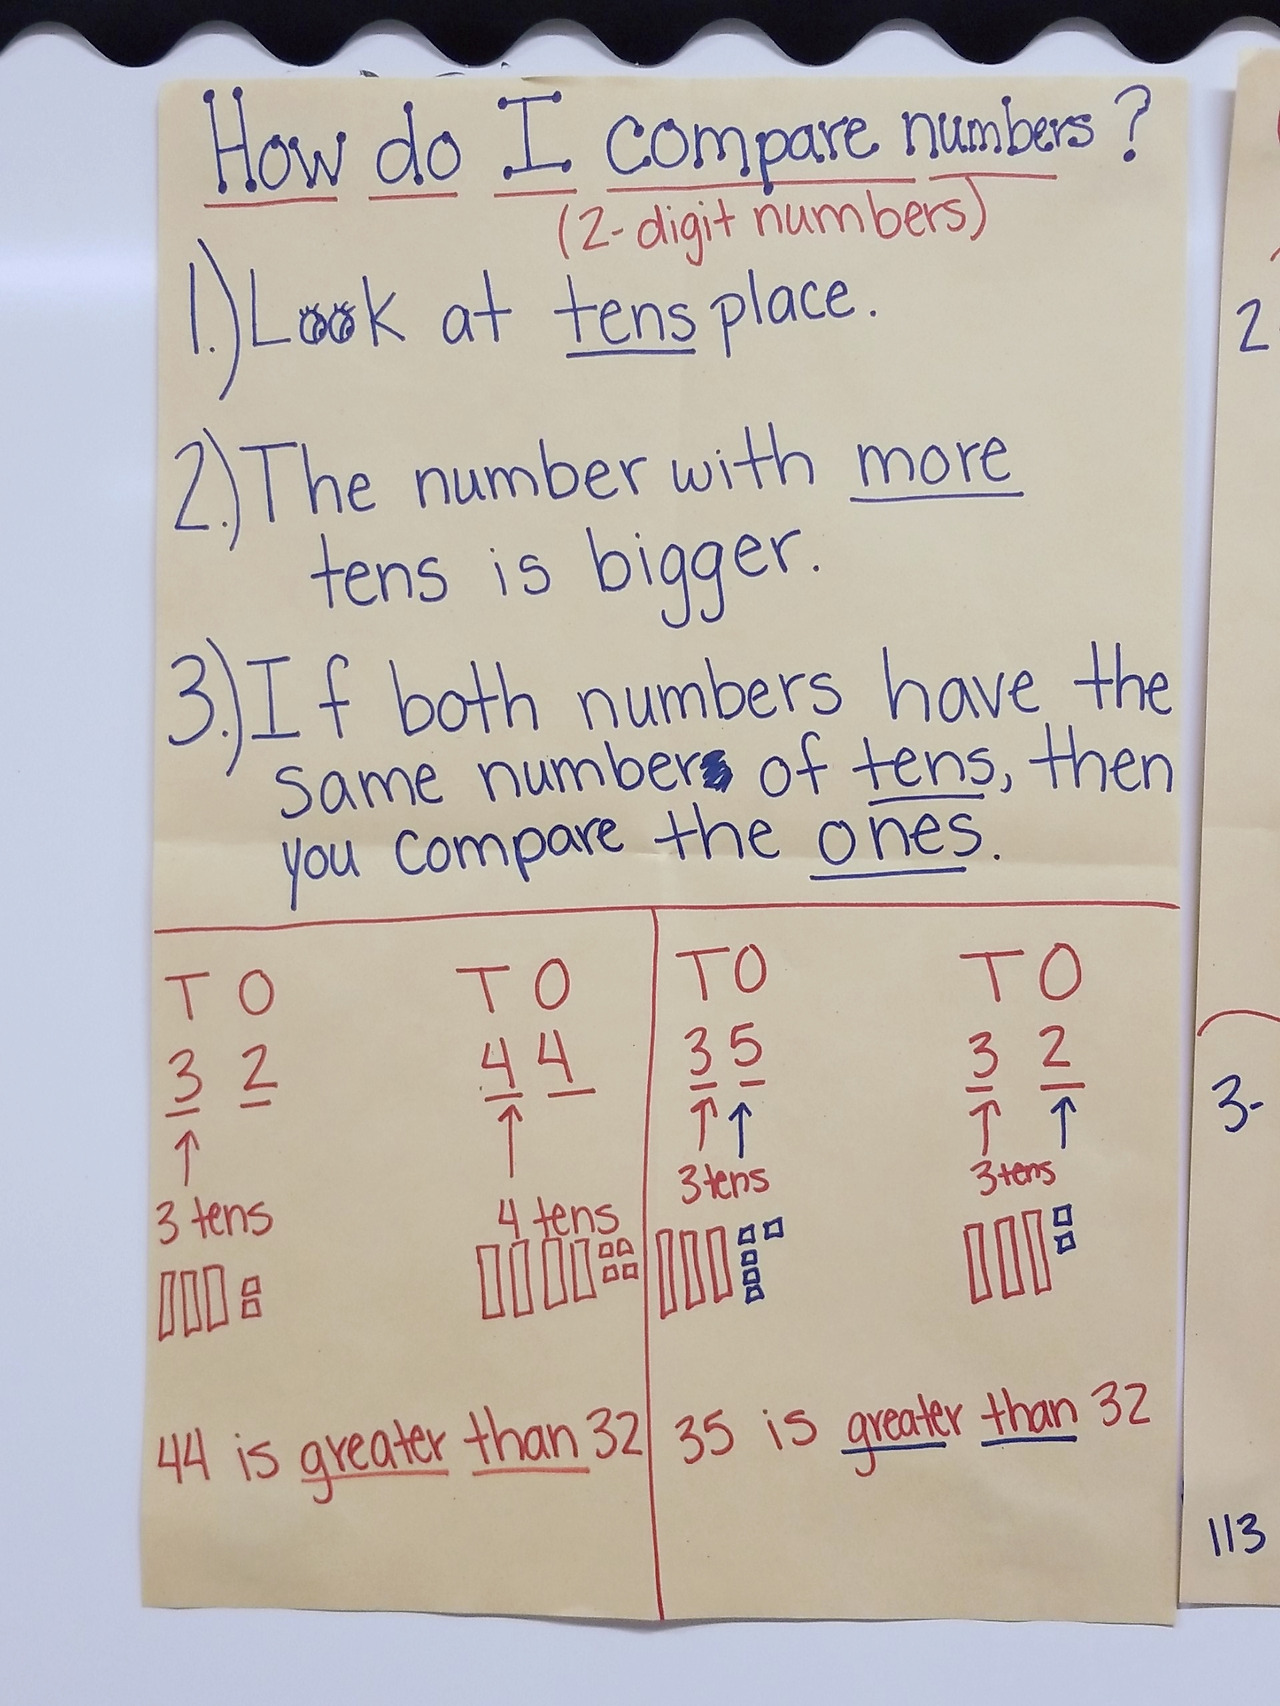 How do I compare numbers?
(2-digit numbers)
1.) Look at tens place.
2.) The number with more
tens is bigger.
3.) If both numbers have the
same number of tens, then
you compare the ones.
T O T O
3 2 4 4
3 tens 4 tens
44 is greater than 32
T O T O
3 5 3 2
3 tens 3 tens
35 is greater than 32
2
3-
113